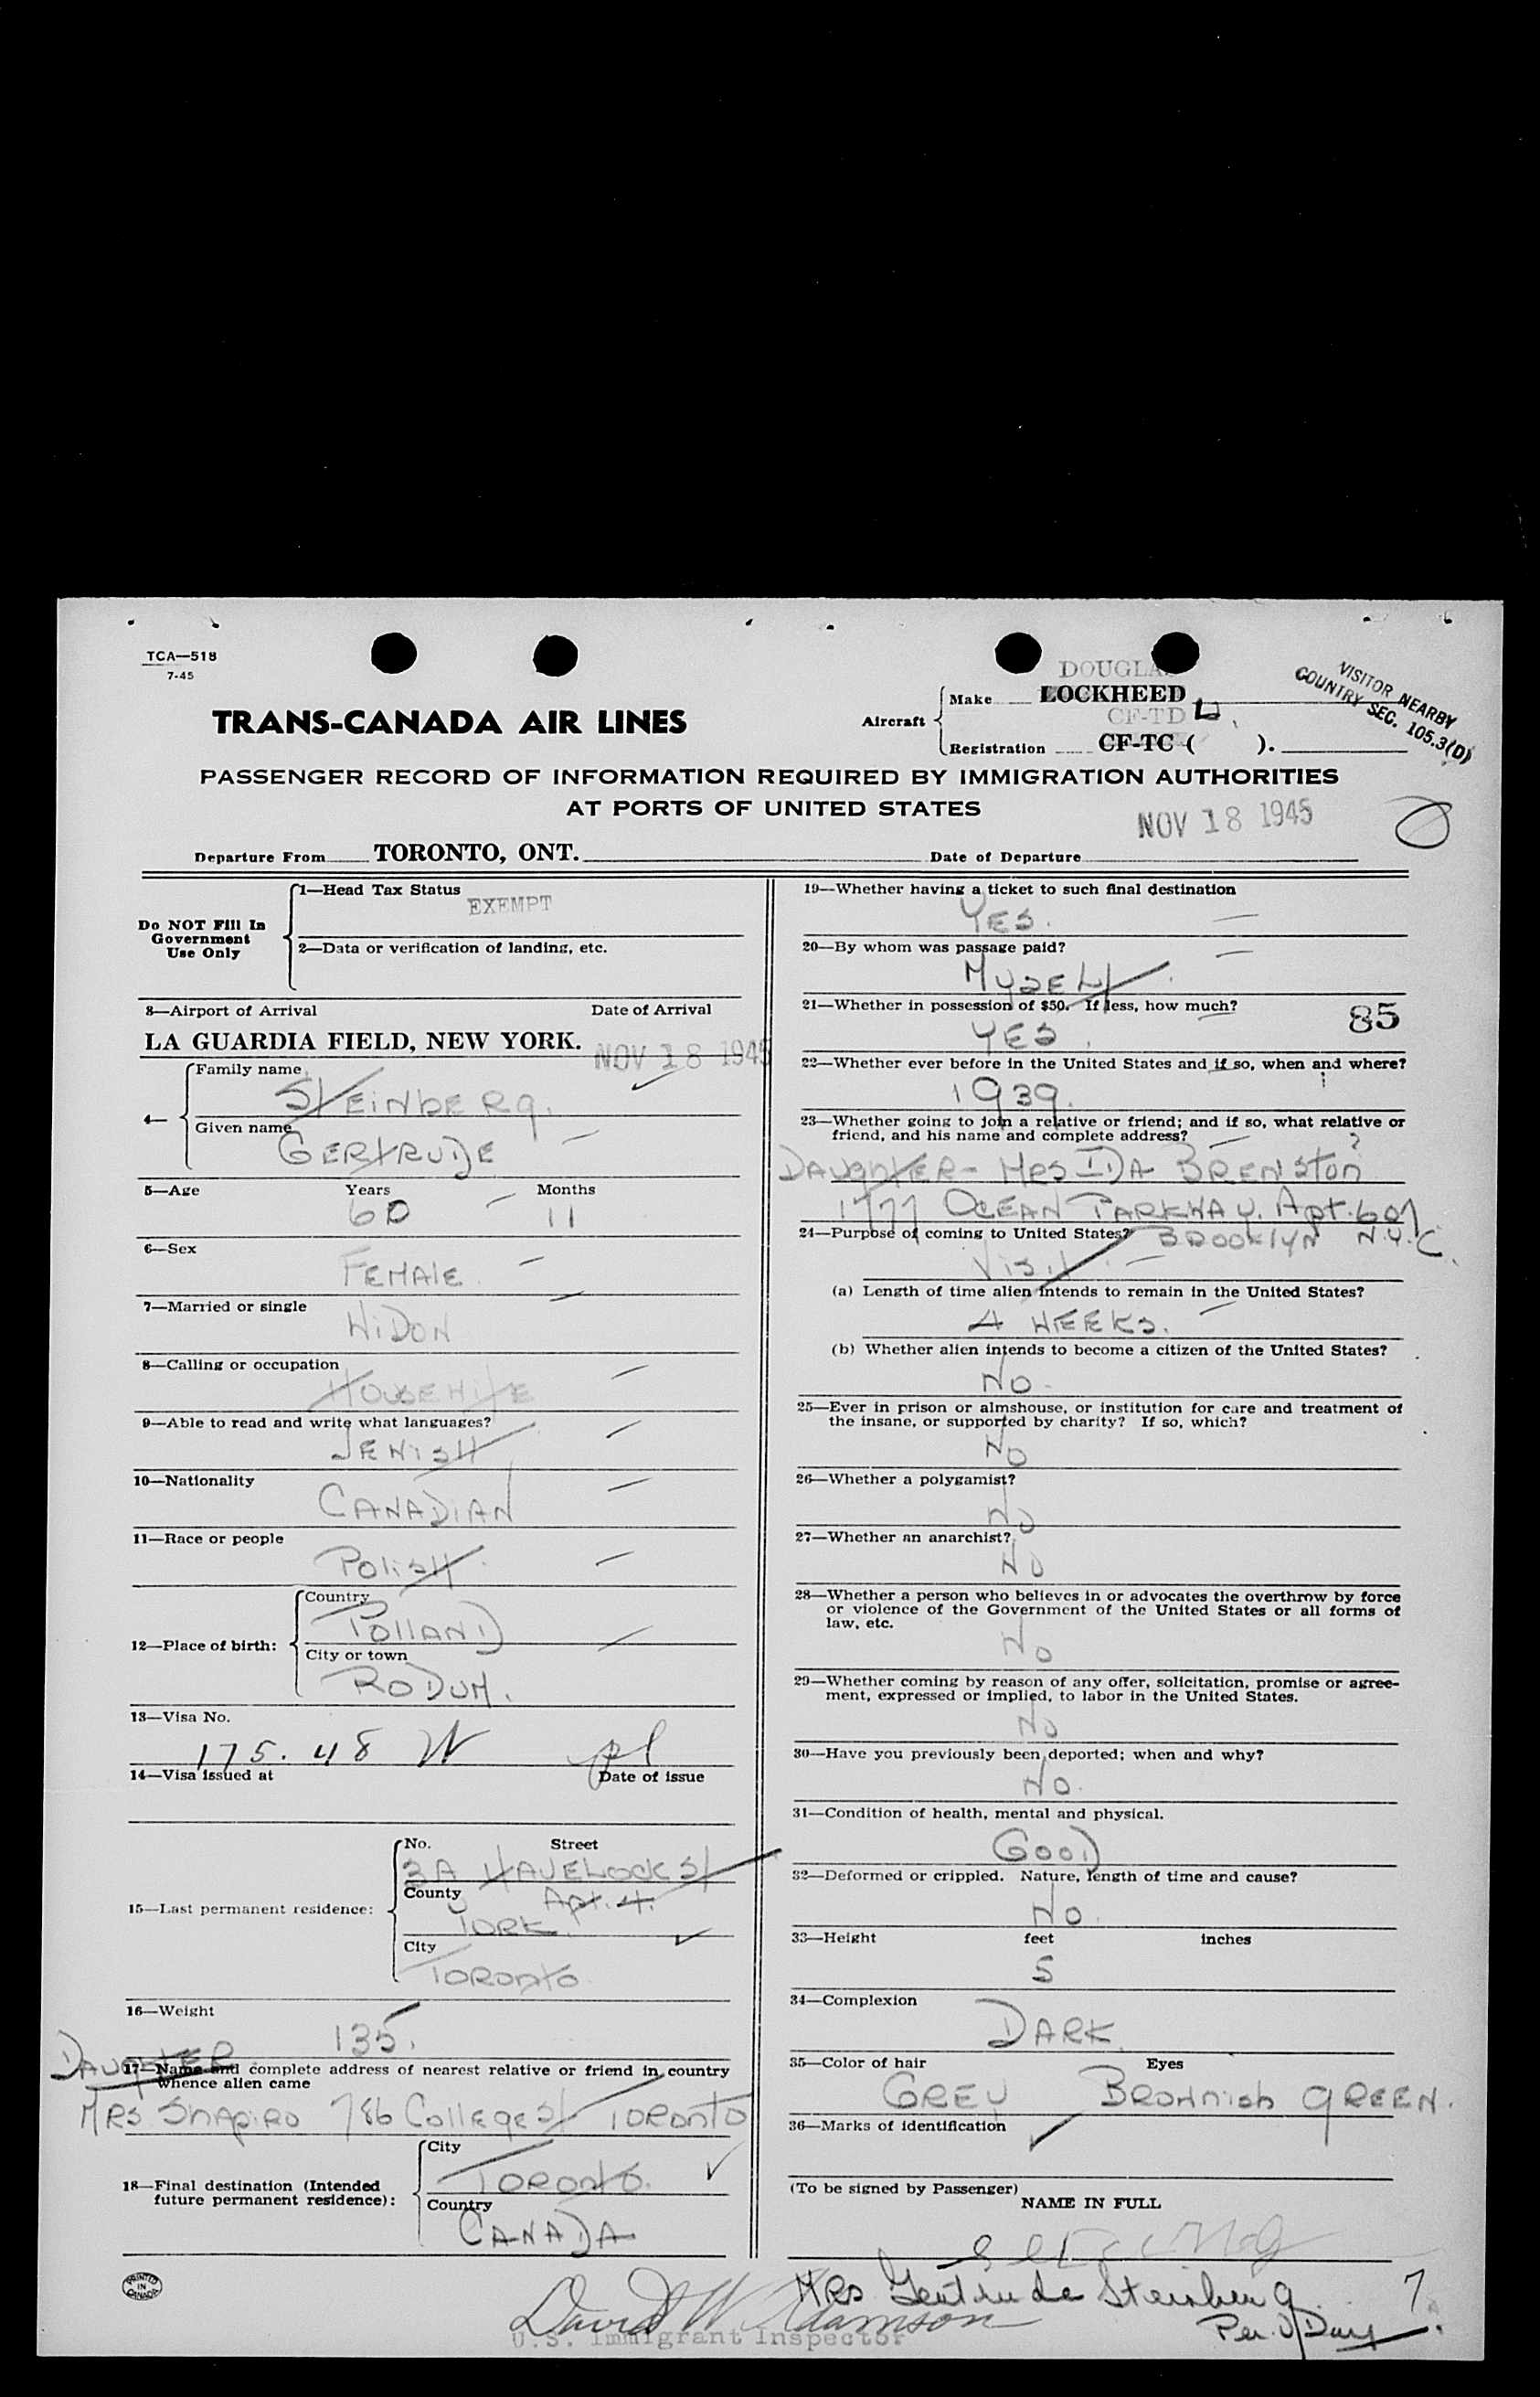 TCA—518
7-45
DOUGLAS
Make LOCKHEED
VISITOR NEARBY
COUNTRY SEC. 105.3(D)
TRANS-CANADA AIR LINES
Aircraft
CF-TD
Registration CF-TC ( ).
PASSENGER RECORD OF INFORMATION REQUIRED BY IMMIGRATION AUTHORITIES
AT PORTS OF UNITED STATES
NOV 18 1945
Departure From TORONTO, ONT. Date of Departure
Do NOT Fill In
Government
Use Only
1—Head Tax Status
EXEMPT
2—Data or verification of landing, etc.
3—Airport of Arrival Date of Arrival
LA GUARDIA FIELD, NEW YORK. NOV 18 1945
4— Family name
STEINbERg.
Given name
GERTRUDE
5—Age Years Months
60 11
6—Sex
FEMALE
7—Married or single
WiDOW
8—Calling or occupation
HOUSEWIFE
9—Able to read and write what languages?
JEWiSH
10—Nationality
CANADiAN
11—Race or people
POLiSH
12—Place of birth: Country
POLLAND
City or town
RODUM.
13—Visa No.
175.48 W
14—Visa issued at Date of issue
15—Last permanent residence: No. Street
3A HAVELOCK ST
County Apt. 4.
YORK.
City
TORONTO
16—Weight
135.
DAUGHTER
17—Name and complete address of nearest relative or friend in country
whence alien came
MRS SHAPIRO 786 COLLEGE ST TORONTO
18—Final destination (Intended
future permanent residence): City
TORONTO.
Country
CANADA
PRINTED
IN
CANADA
19—Whether having a ticket to such final destination
YES.
20—By whom was passage paid?
MYSELF.
21—Whether in possession of $50. If less, how much? 85
YES.
22—Whether ever before in the United States and if so, when and where?
1939.
23—Whether going to join a relative or friend; and if so, what relative or
friend, and his name and complete address?
DAUGHTER- MRS IDA BRENSTON ?
1777 OCEAN PARKWAY. Apt. 607
24—Purpose of coming to United States? BROOKLYN N.Y.C.
Visit.
(a) Length of time alien intends to remain in the United States?
4 WEEKS.
(b) Whether alien intends to become a citizen of the United States?
NO.
25—Ever in prison or almshouse, or institution for care and treatment of
the insane, or supported by charity? If so, which?
NO
26—Whether a polygamist?
NO
27—Whether an anarchist?
NO
28—Whether a person who believes in or advocates the overthrow by force
or violence of the Government of the United States or all forms of
law, etc.
NO
29—Whether coming by reason of any offer, solicitation, promise or agree-
ment, expressed or implied, to labor in the United States.
NO
30—Have you previously been deported; when and why?
NO.
31—Condition of health, mental and physical.
GOOD
32—Deformed or crippled. Nature, length of time and cause?
NO.
33—Height feet inches
5
34—Complexion
DARK.
35—Color of hair Eyes
GREY BROWNish GREEN.
36—Marks of identification
(To be signed by Passenger)
NAME IN FULL
MRS Gertrude Steinberg. 7
David W Adamson
U.S. Immigrant Inspector